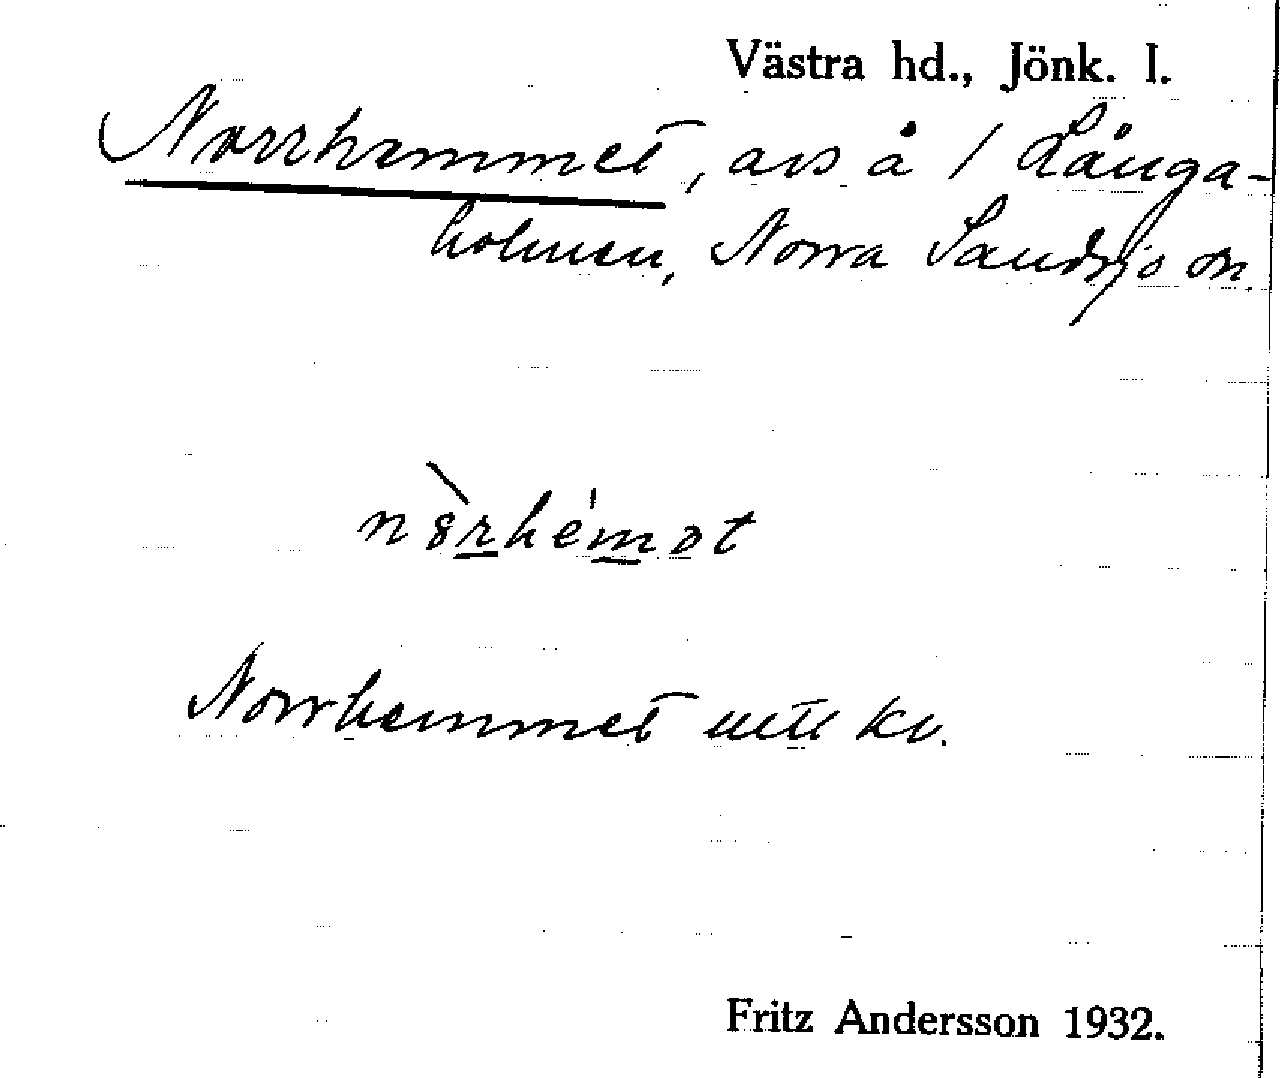 Västra hd., Jönk. l.
Norrhemmet, avs å 1 Långa-
holmen, Norra Sandsjö sn.
Norrhemmet
Fritz Andersson 1932.